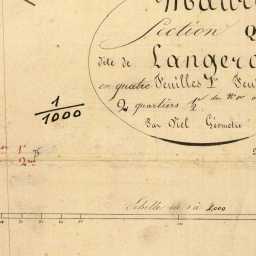 Section
dite de Langer
en quatre Feuilles 1re Feu
2 quartiers
Par Viel Géometre
1
1000
1r
2me
Echelle de 1 à 2000